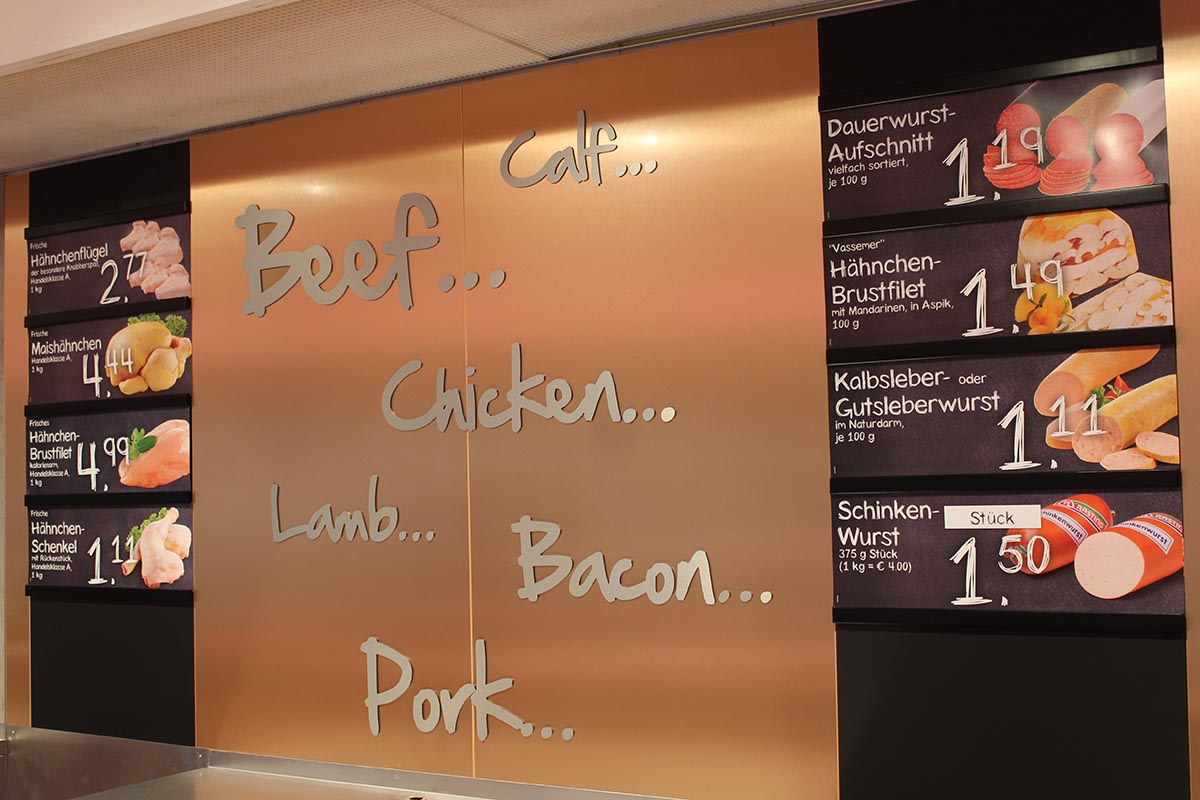 Frische
Hähnchenflügel
der besondere Knabberspaß,
Handelsklasse A,
1 kg
2.77
Frische
Maishähnchen
Handelsklasse A,
1 kg
4.44
Frisches
Hähnchen-
Brustfilet
kalorienarm,
Handelsklasse A,
1 kg
4.99
Frische
Hähnchen-
Schenkel
mit Rückenstück,
Handelsklasse A,
1 kg
1.11
Calf...
Beef...
Chicken...
Lamb...
Bacon...
Pork...
Dauerwurst-
Aufschnitt
vielfach sortiert,
je 100 g
1.19
"Vassemer"
Hähnchen-
Brustfilet
mit Mandarinen, in Aspik,
100 g
1.49
Kalbsleber- oder
Gutsleberwurst
im Naturdarm,
je 100 g
1.11
Schinken-
Wurst
375 g Stück
(1 kg = € 4.00)
Stück
1.50
Schinkenwurst